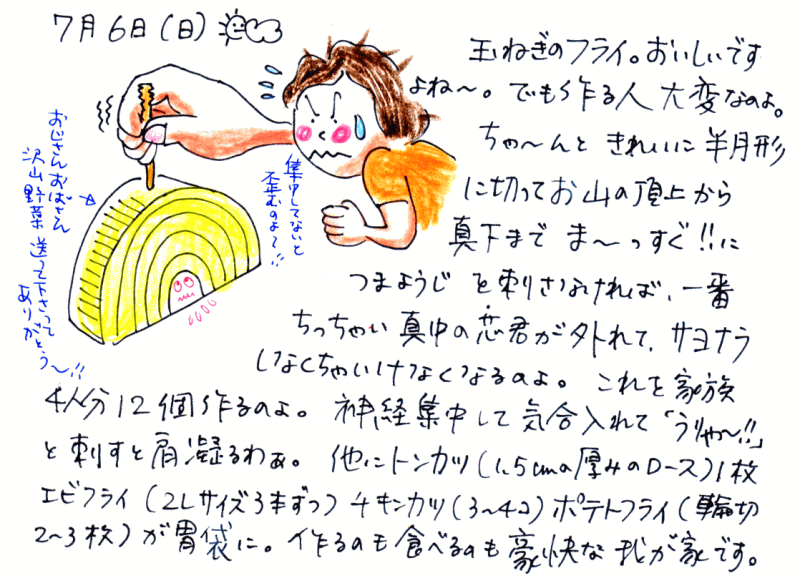 7月6日(日)
玉ねぎのフライ。おいしいです
よね〜。でも作る人大変なのよ。
ちゃ〜んときれいに半月形
に切ってお山の頂上から
真下までま〜っすぐ!!に
つまようじを刺さなければ、一番
ちっちゃい真中の恋君が外れて、サヨナラ
しなくちゃいけなくなるのよ。これを家族
4人分12個作るのよ。神経集中して気合入れて「うりゃ〜!!」
と刺すと肩凝るわぁ。他にトンカツ(1.5cmの厚みのロース)1枚
エビフライ(2Lサイズ3本ずつ)チキンカツ(3〜4コ)ポテトフライ(輪切
2〜3枚)が胃袋に。作るのも食べるのも豪快な我が家です。
集中してないと
歪むのよて!!
おじさんおばさん
沢山野菜送って下さって
ありがとう〜!!